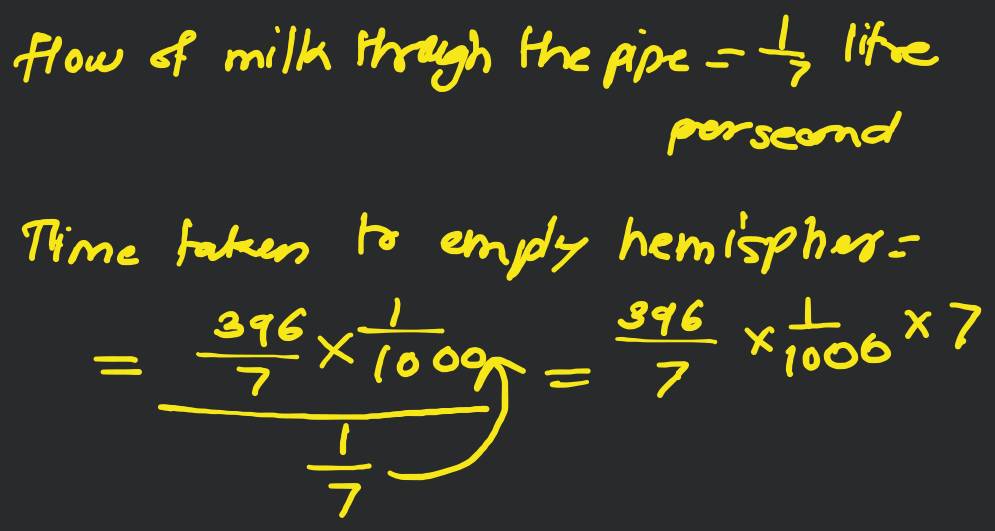 flow of milk through the pipe = 1/7 litre
per second
Time taken to empty hemispher =
= (396/7 × 1/1000) / (1/7) = 396/7 × 1/1000 × 7